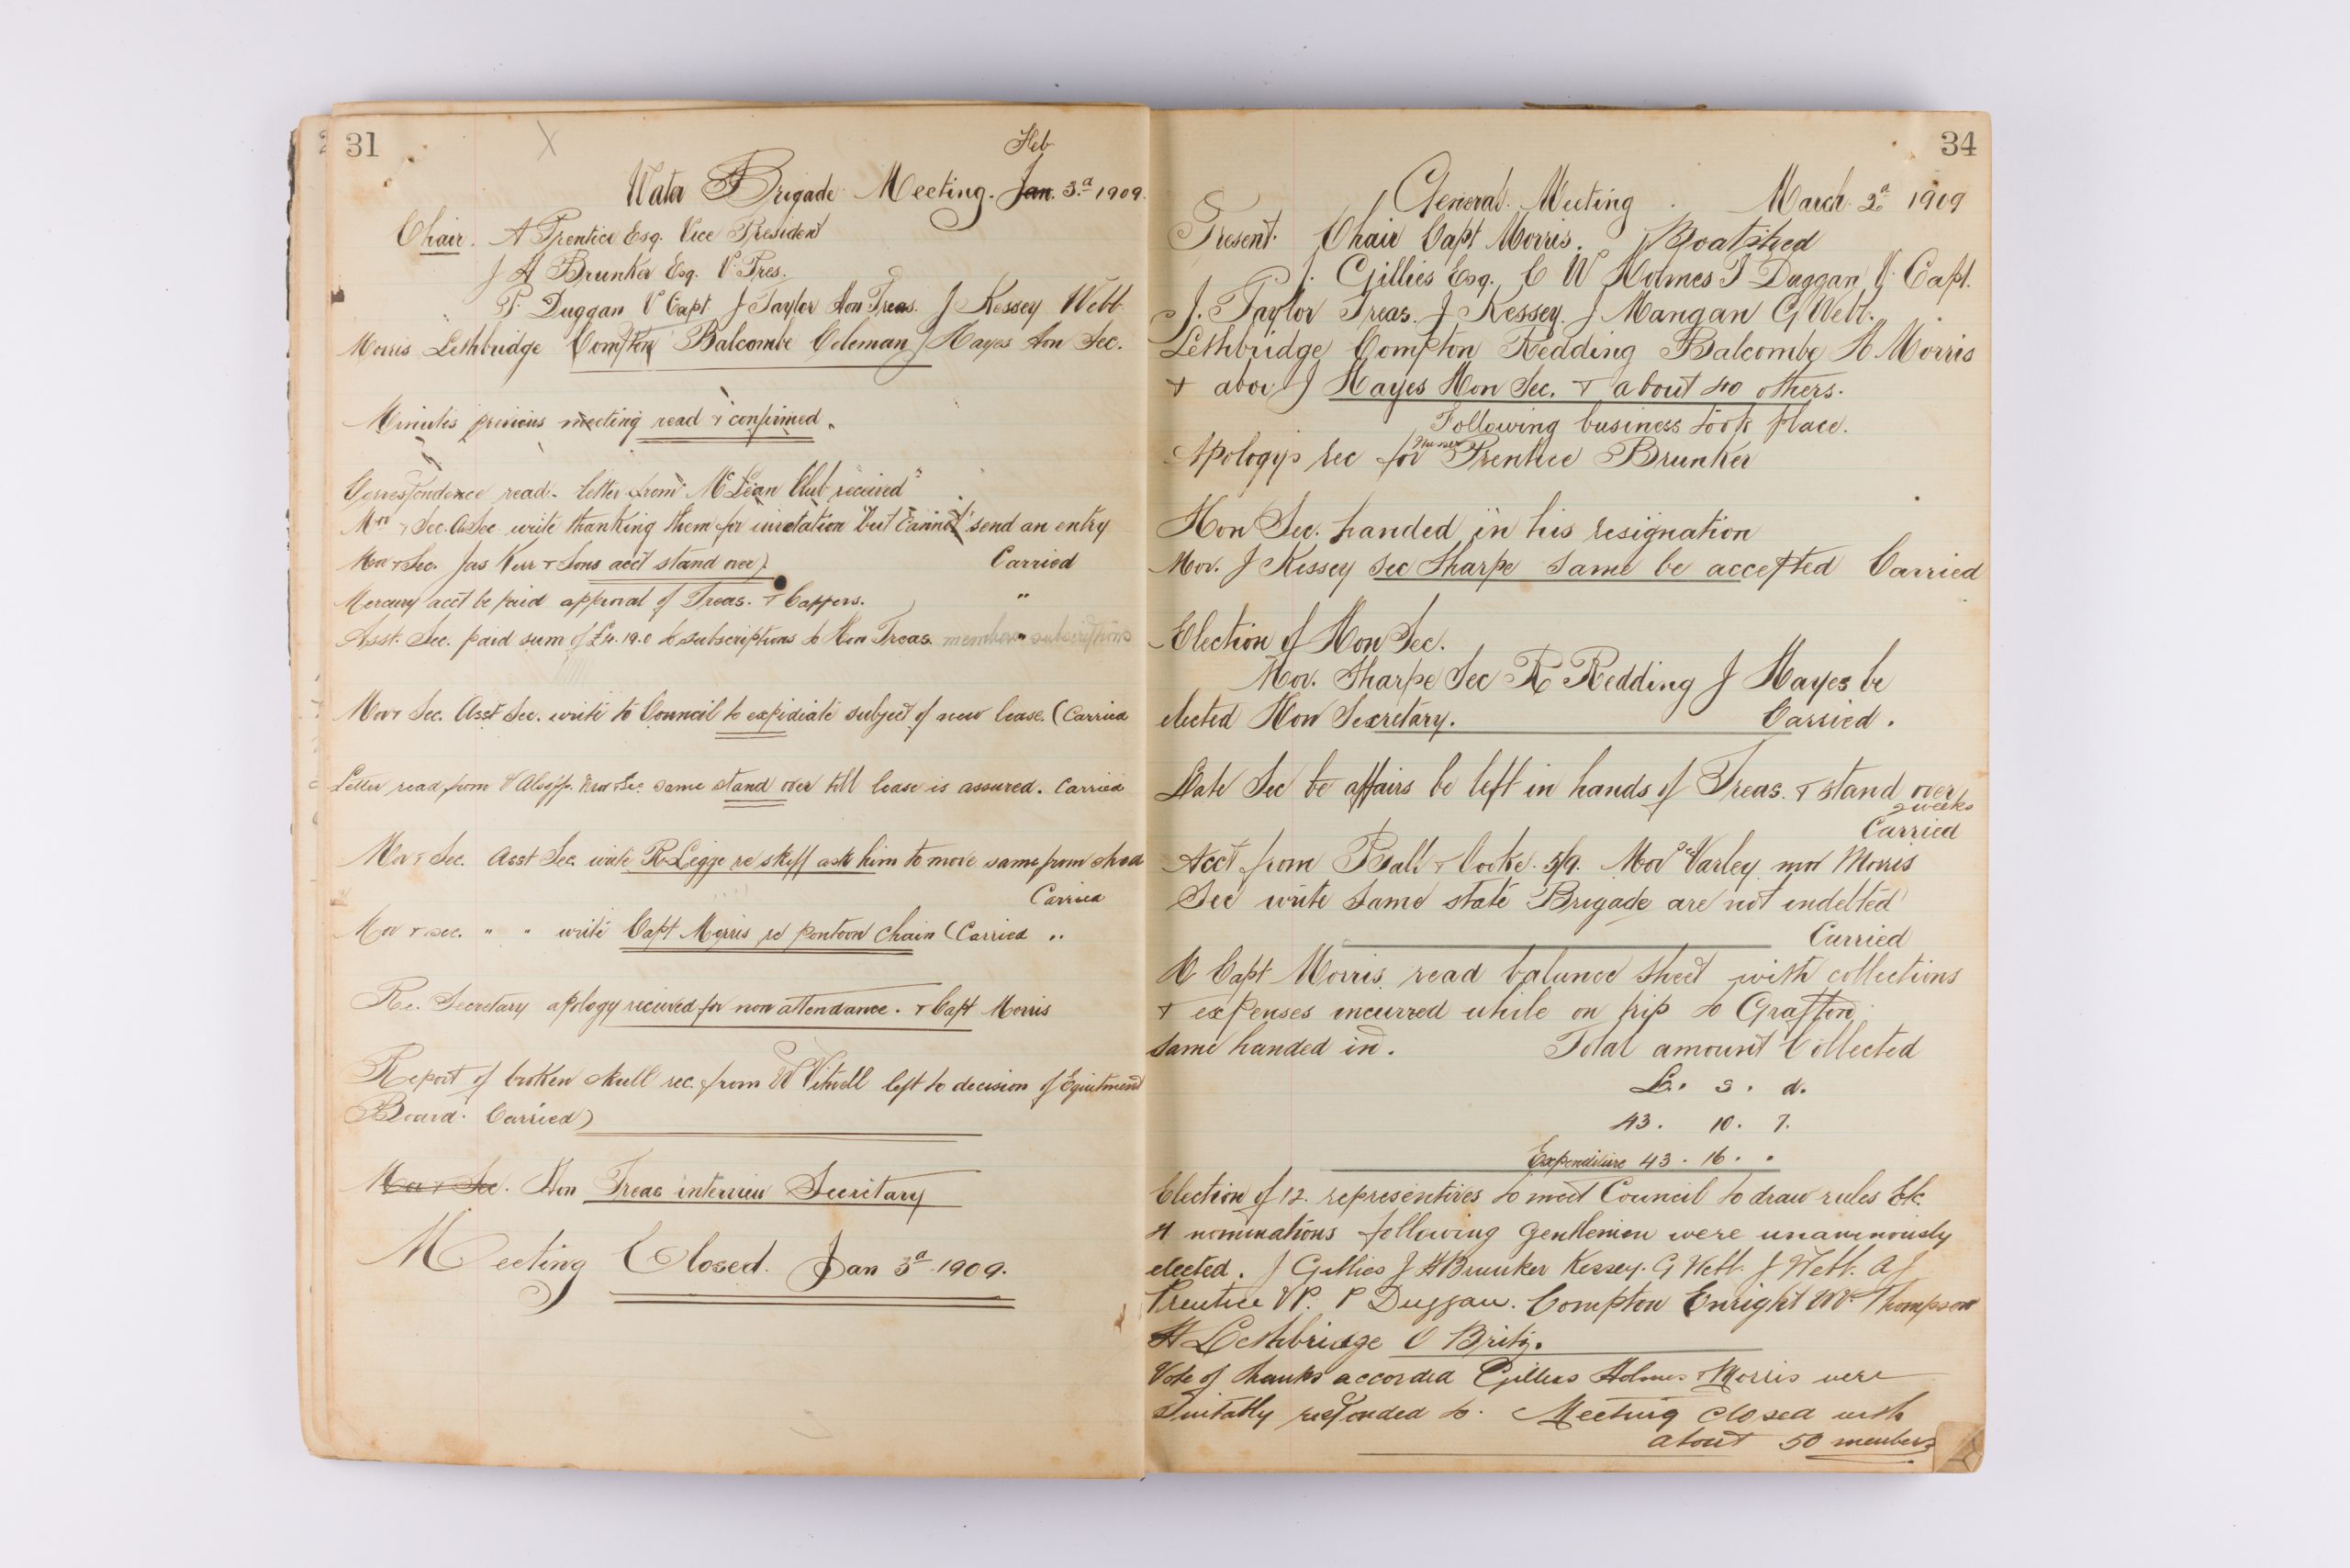 31
Feb
Water Brigade Meeting. Jan. 3.d 1909.
Chair. A Prentice Esq. Vice President
J H Brunker Esq. V. Pres.
P Duggan V Capt J Taylor Hon Treas. J Kessey Webb
Morris Lethbridge Compton Balcombe Coleman J Hayes Hon Sec.
Minutes previous meeting read & confirmed.
Correspondence read. letter from McLean Club "received"
Mov & Sec. A Sec write thanking them for invitation "but cannot" send an entry
Mov & Sec. Jas Kerr & Sons acct stand over) Carried
Mercury acct be paid approval of Treas. & Cappers. "
Asst. Sec. paid sum of £4.19.0 to subscriptions to Hon Treas. members " subscriptions
Mov & Sec. Asst Sec. write to Council to expidiate subject of new lease. (Carried
Letter read from Mov & Sec same stand over till lease is assured. Carried
Mov & Sec. Asst Sec. write R Legge re skiff ask him to move same from shed
Carried
Mov & sec. " " write Capt Morris re pontoon chain (Carried "
Re. Secretary apology recieved for non attendance. & Capt Morris
Report of broken skull rec. from W left to decision of
Board. Carried)
Mov & Sec. Hon Treas interview Secretary
Meeting Closed. Jan 3d 1909.
34
General Meeting. March 2d 1909
Present. Chair Capt Morris. Boatshed
J. Gillies Esq. C W Holmes P Duggan V. Capt.
J. Taylor Treas. J Kessey. J Mangan G Webb.
Lethbridge Compton Redding Balcombe H Morris
& J Hayes Hon Sec. & about 40 others.
Following business took place.
Apology's rec for Prentice Brunker
Hon Sec. handed in his resignation
Mov. J Kessey sec Sharpe same be accepted Carried
Election of Hon Sec.
Mov. Sharpe Sec R Redding J Hayes be
elected Hon Secretary. Carried.
Late Sec be affairs be left in hands of Treas. & stand over
2 weeks
Carried
Acct from Ball & Cooke. 5/9. Mov Sec Varley mov Morris
Sec write same state Brigade are not indebted
Carried
Capt Morris read balance sheet with collections
& expenses incurred while on trip to Grafton
same handed in. Total amount Collected
£. s. d.
43. 10. 7.
Expenditure 43. 16. .
Election of 12. representives to meet Council to draw rules Etc.
nominations following Gentlemen were unaminously
elected. J Gillies J H Brunker Kessey. G Webb. J Webb. A J
Prentice VP. P Duggan. Compton Enright W. Thompson
H Lethbridge O Britz.
Vote of thanks accorded Gillies Holmes & Morris were
Suitably responded to. Meeting closed with
about 50 members